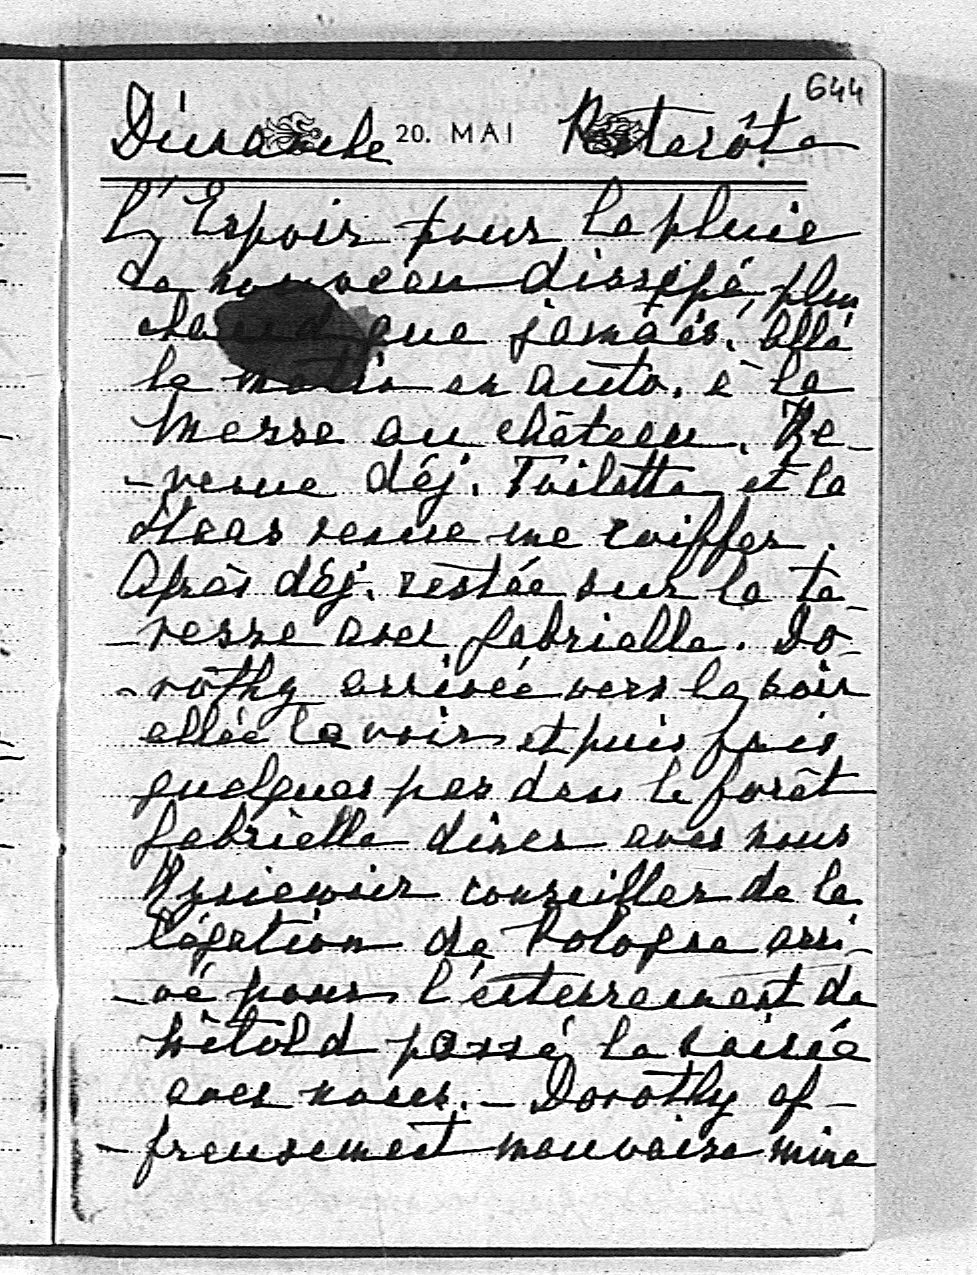 644
Dimanche 20. MAI Pentecôte
L'Espoir pour la pluie
de nouveau dissipé, plus
chaud que jamais. Allé
le matin en auto. à la
Messe au château. Re-
-venue déj. Toilette et la
venue me coiffer.
Après déj. restée sur la te-
-resse avec Gabrielle. Do-
-rothy arrivée vers le soir
allée la voir et puis fais
quelques pas dans la forêt
Gabrielle diner avec nous
conseiller de la
légation de Pologne arri-
-vé pour l'enterrement de
Witold passé la soirée
avec nous. - Dorothy af-
-freusement mauvaise mine